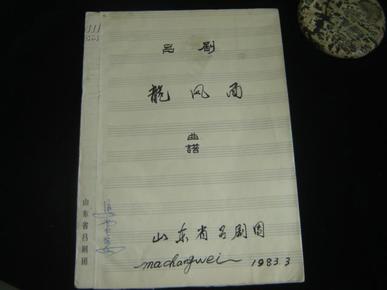 吕剧
龍风雨
曲譜
山东省吕剧团
machangwei 1983.3
山东省吕剧团